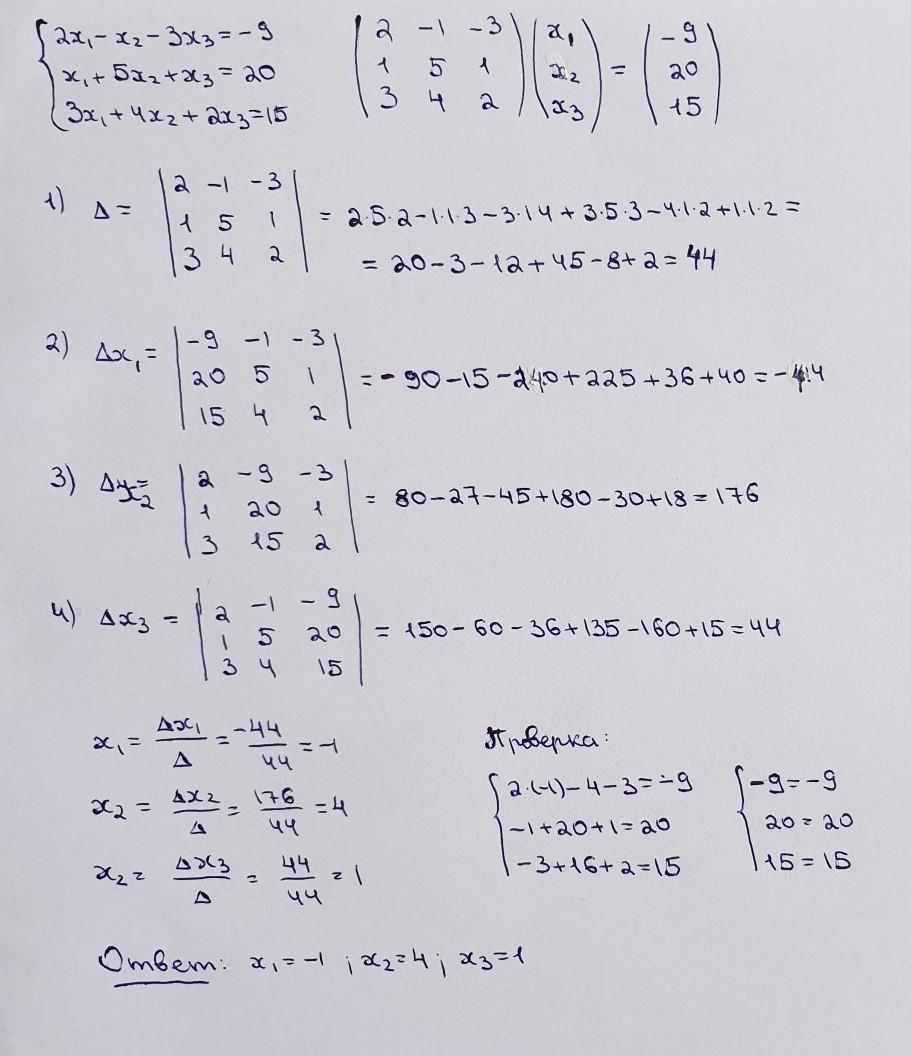 2x₁-x₂-3x₃=-9
x₁+5x₂+x₃=20
3x₁+4x₂+2x₃=15
2 -1 -3 x₁ -9
1 5 1 x₂ = 20
3 4 2 x₃ 15
1) Δ= 2 -1 -3
1 5 1
3 4 2
= 2·5·2-1·1·3-3·14+3·5·3-4·1·2+1·1·2=
= 20-3-12+45-8+2=44
2) Δx₁= -9 -1 -3
20 5 1
15 4 2
=-90-15-240+225+36+40=-44
3) Δx₂= 2 -9 -3
1 20 1
3 15 2
= 80-27-45+180-30+18=176
4) Δx₃ = 2 -1 -9
1 5 20
3 4 15
= 150-60-36+135-160+15=44
x₁= Δx₁/Δ = -44/44 =-1
x₂ = Δx₂/Δ = 176/44 =4
x₂= Δx₃/Δ = 44/44 =1
Проверка:
2·(-1)-4-3=-9
-1+20+1=20
-3+16+2=15
-9=-9
20=20
15=15
Ответ: x₁=-1 ; x₂=4; x₃=1